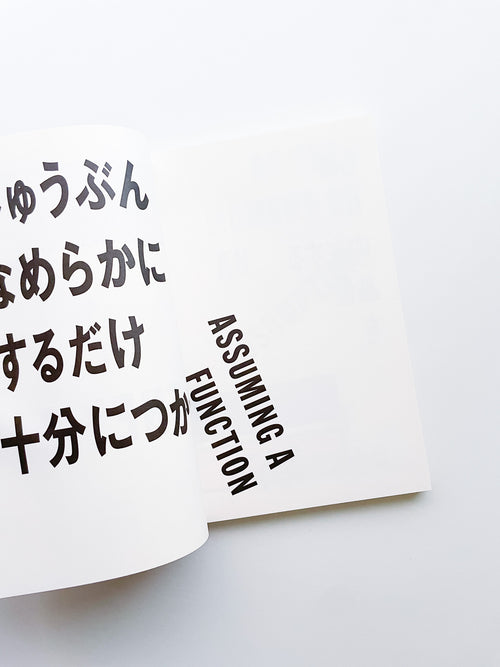 じゅうぶん
なめらかに
するだけ
十分につか
ASSUMING A
FUNCTION